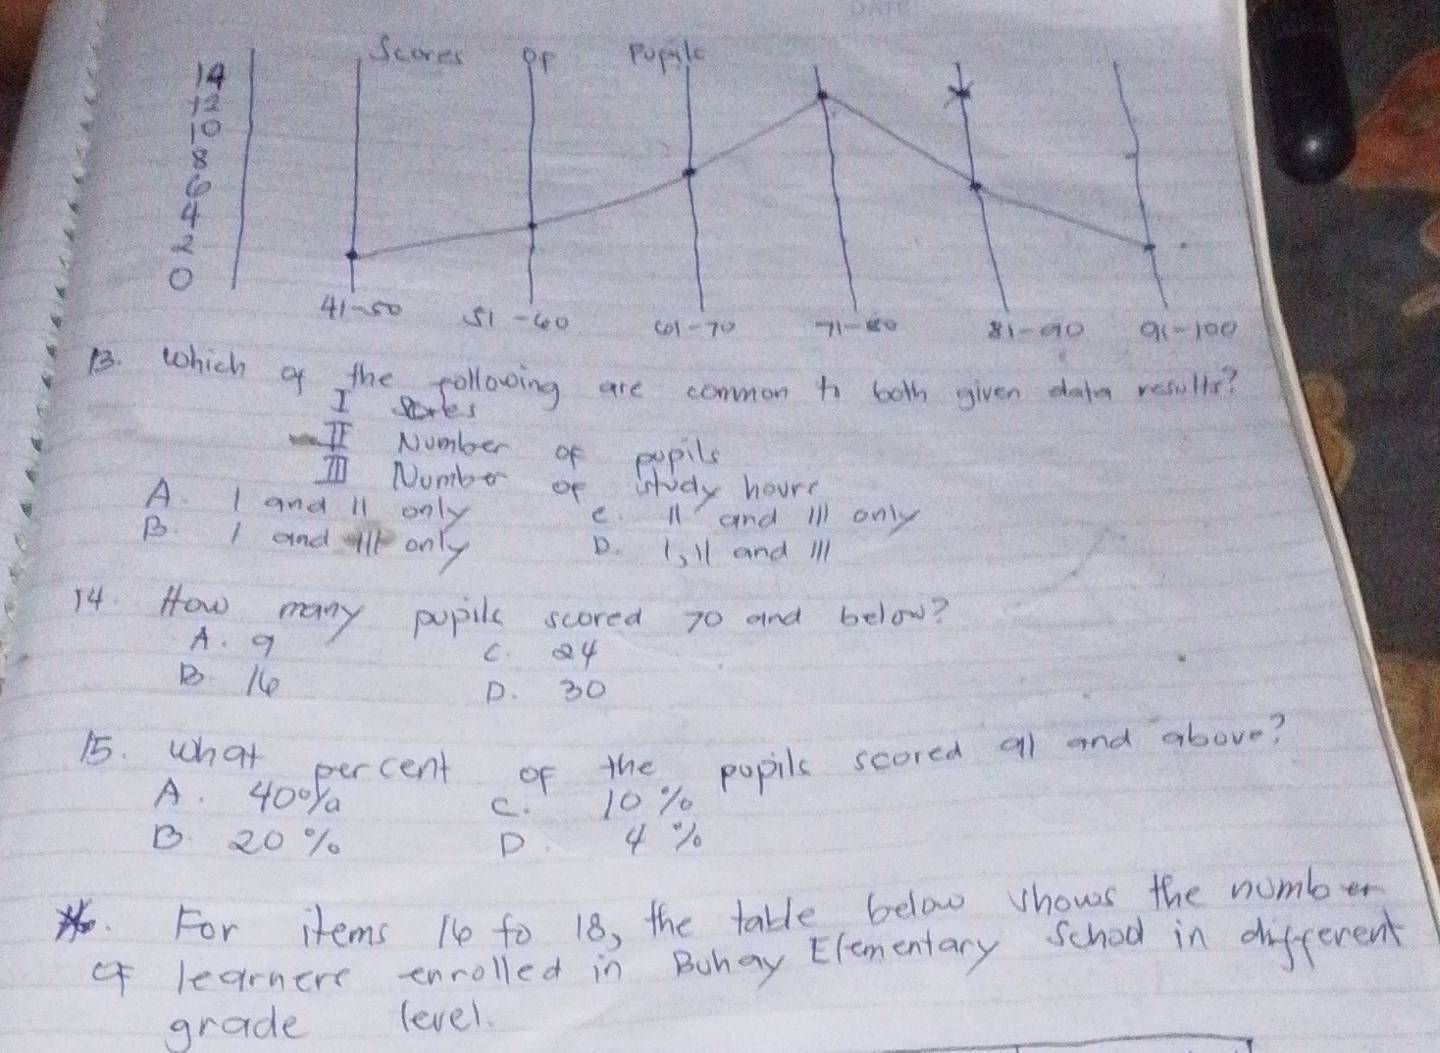 Scores of Pupils
14
12
10
8
6
4
2
0
41-50 51-60 61-70 71-80 81-90 91-100
13. Which of the following are common to both given data results?
I Scores
II Number of pupils
III Number of study hours
A. I and II only C. II and III only
B. I and III only D. I, II and III
14. How many pupils scored 70 and below?
A. 9 C. 24
B. 16 D. 30
15. What percent of the pupils scored 91 and above?
A. 40% C. 10%
B. 20% D. 4%
For items 16 to 18, the table below shows the number
of learners enrolled in Buhay Elementary School in different
grade level.